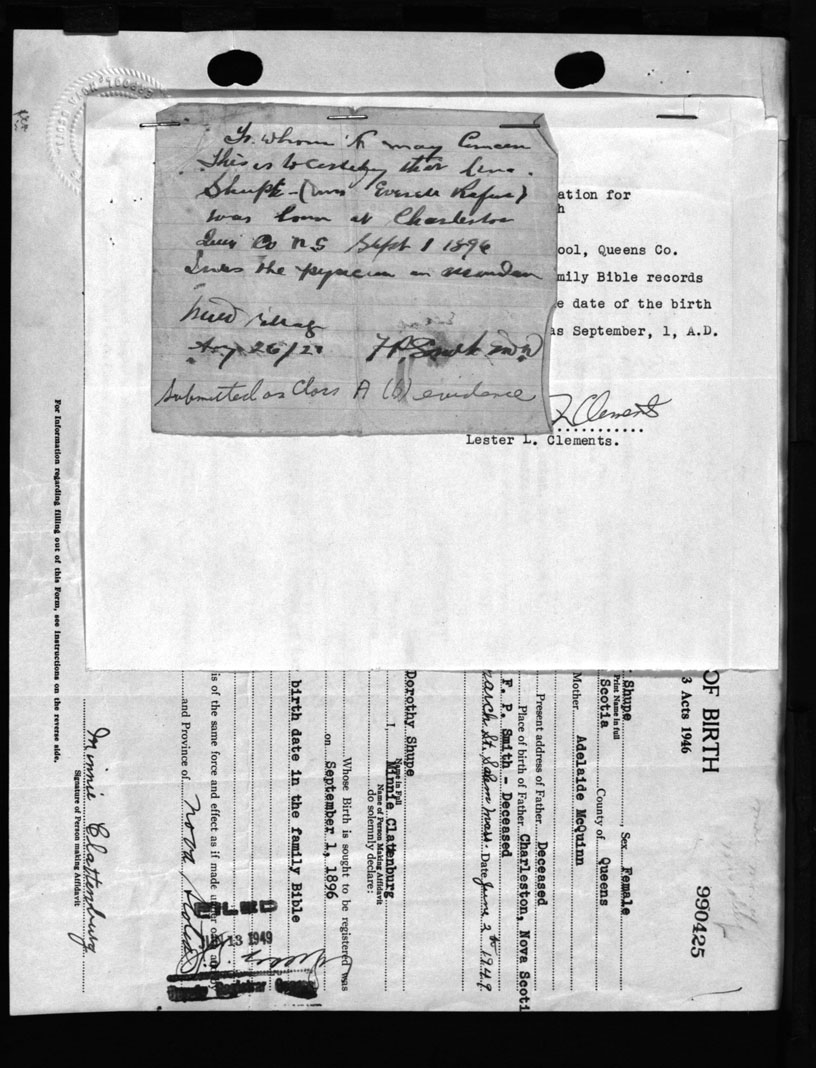 To whom it may Concern
This is to certify that Lena
Shupe - (Mrs Everett Rafuse)
was born at Charleston
Co N S Sept 1 1896
I was the physician in
Mill Village
Aug 26/2
Submitted as Class A (b) evidence
ation for
h
ool, Queens Co.
mily Bible records
e date of the birth
as September, 1, A.D.
L Clements
Lester L. Clements.
OF BIRTH
3 Acts 1946
990425
Shupe, Sex Female
Print Name in full
Scotia County of Queens
Mother Adelaide McQuinn
Present address of Father Deceased
Place of birth of Father Charleston, Nova Scoti
F. P. Smith - Deceased
St. Salem Mass. Date June 2nd 1949
Dorothy Shupe
I, Minnie Clattenburg
Name in Full
Name of Person Making Affidavit
do solemnly declare:
Whose Birth is sought to be registered was
on September 1, 1896
birth date in the family Bible
is of the same force and effect as if made under oath
and Province of Nova Scotia
FILED
13 1949
Minnie Clattenburg
Signature of Person making Affidavit
For Information regarding filling out of this Form, see Instructions on the reverse side.